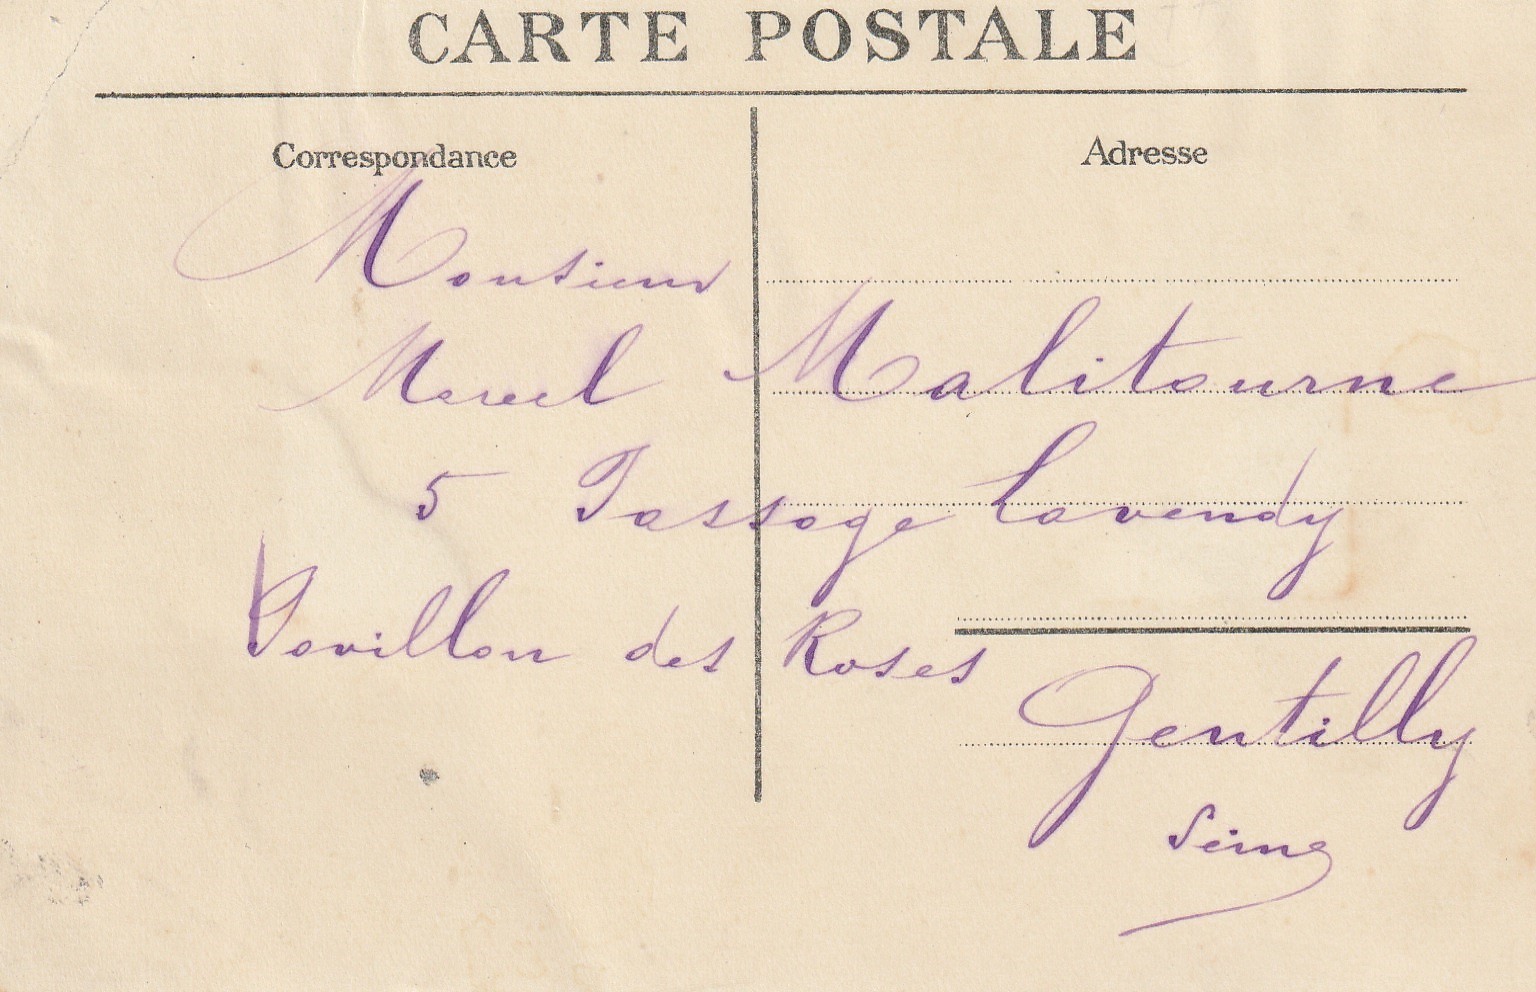 CARTE POSTALE
Correspondance
Adresse
Monsieur
Marcel Malitourne
5 Passage Lavendy
Pavillon des Roses
Gentilly
Seine